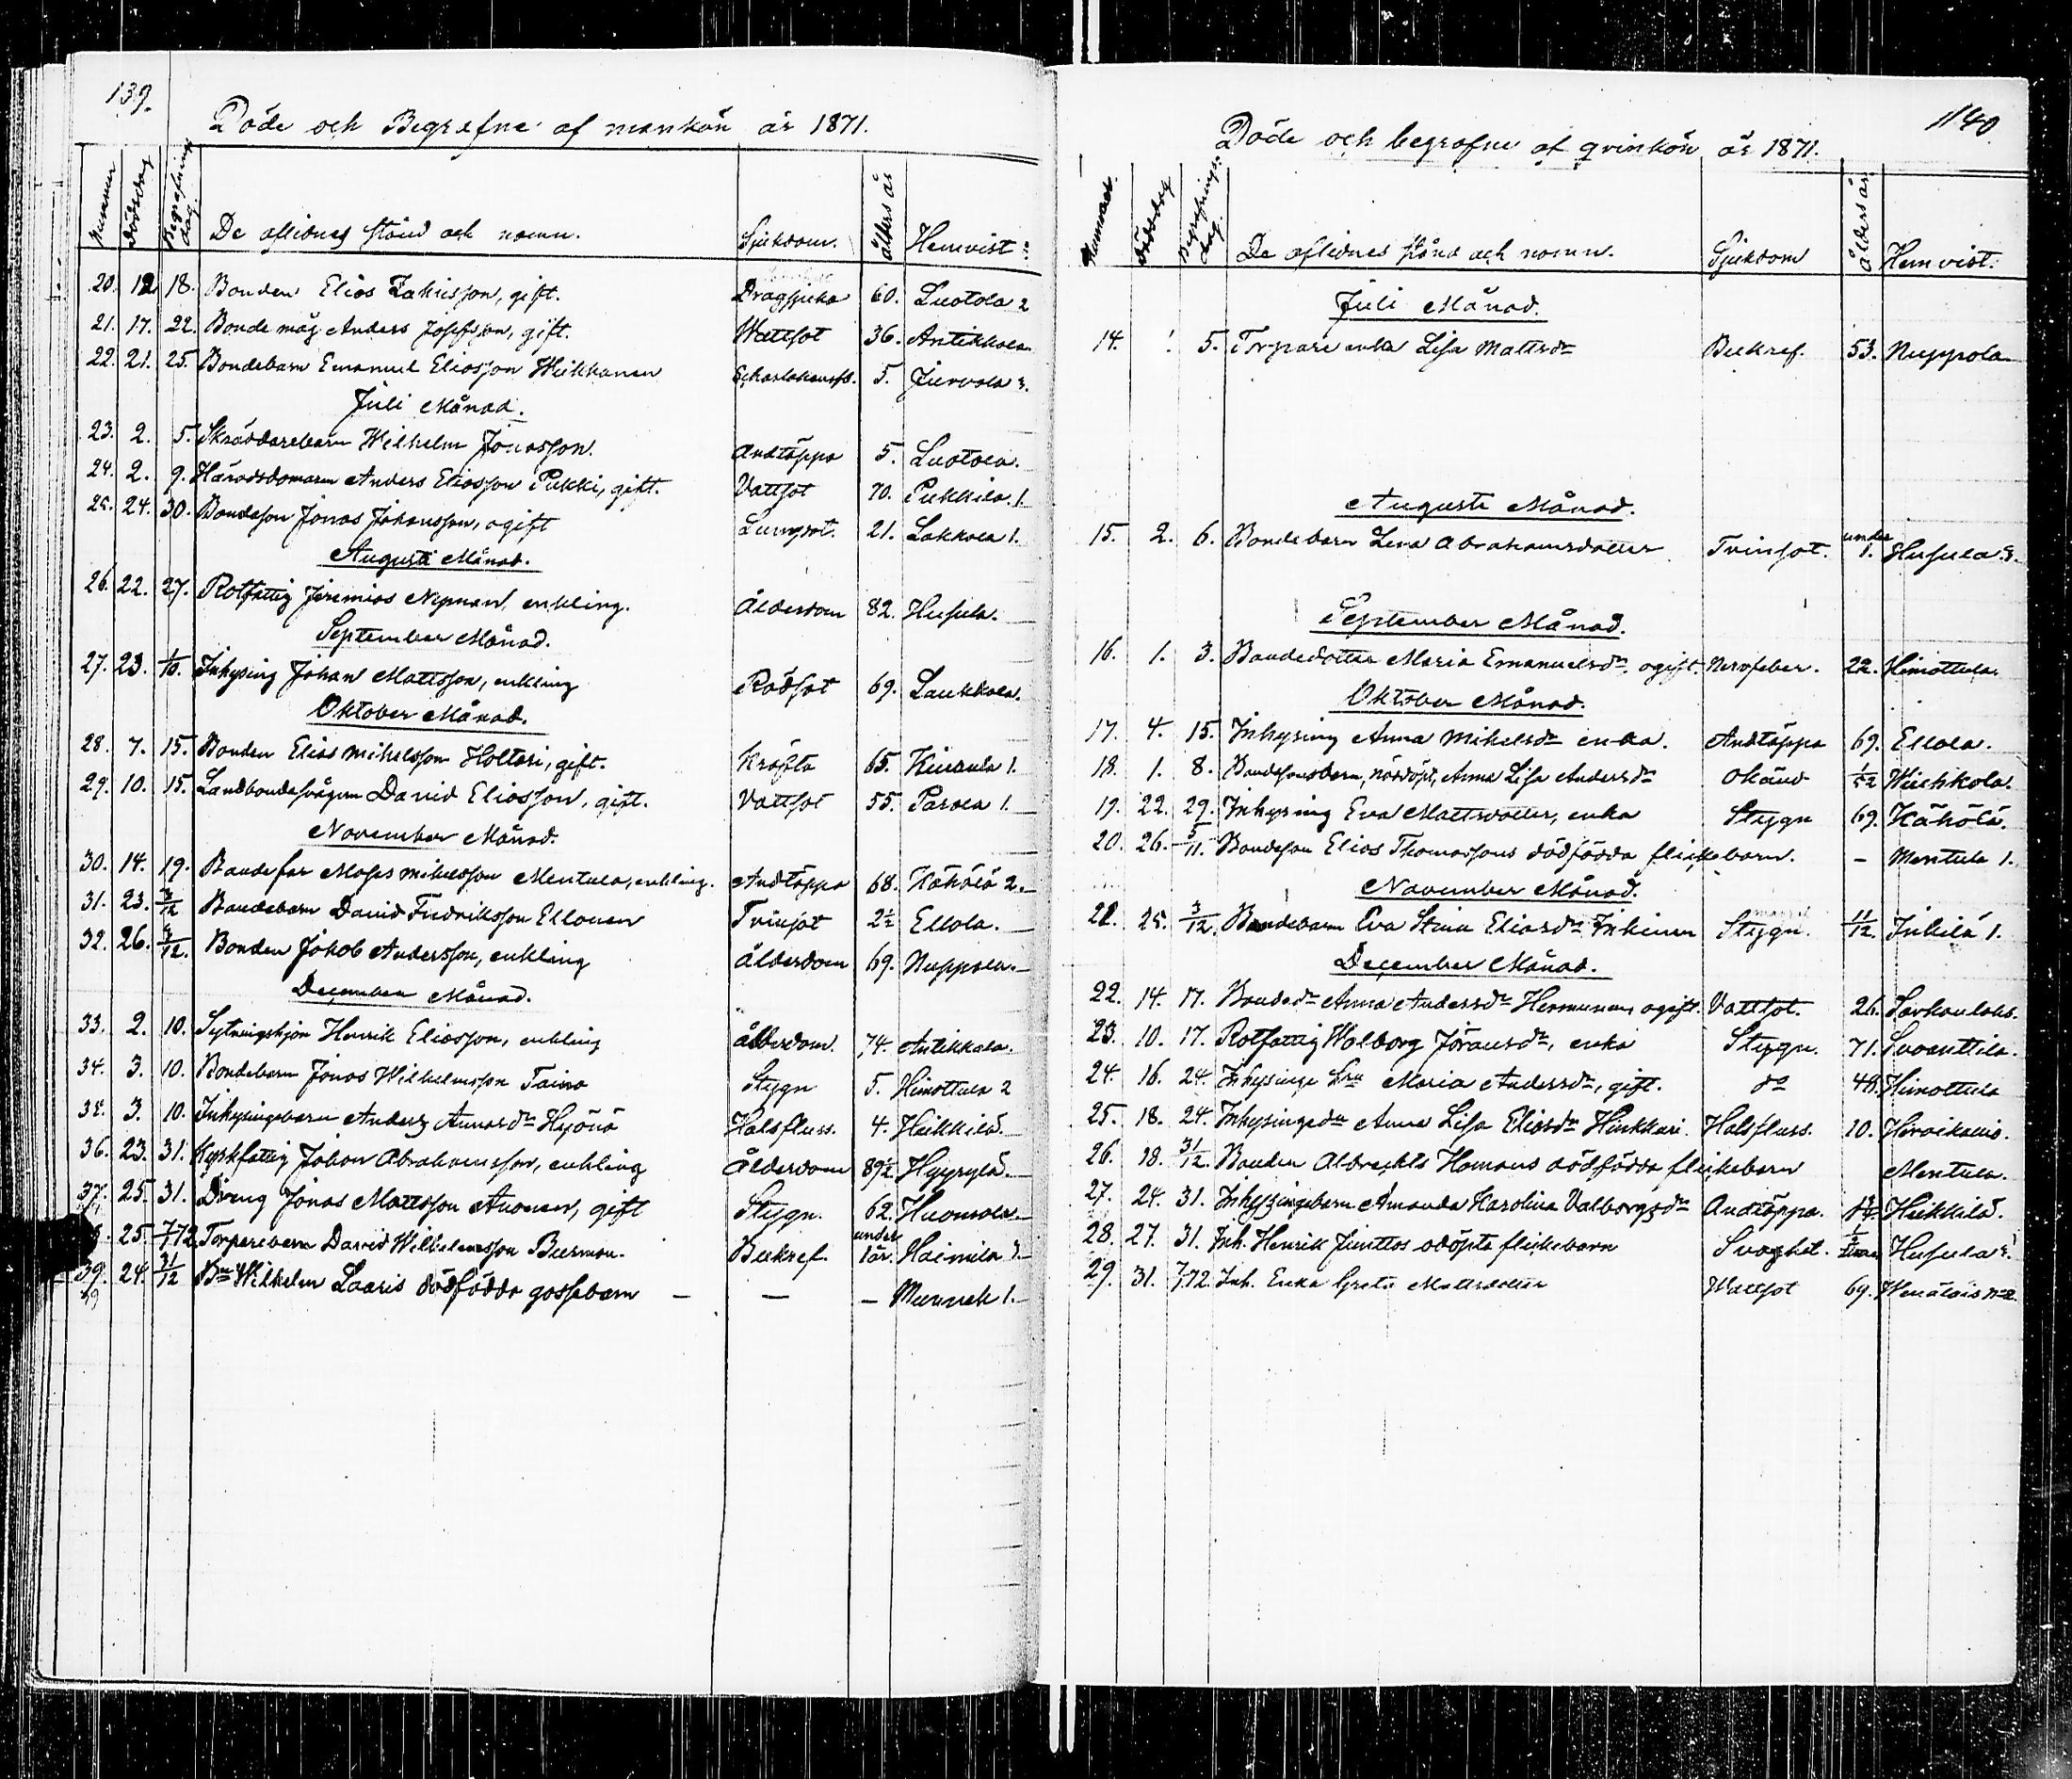 139.
Döde och Begrafne af mankön år 1871.
Nummer Dödsdag Begrafnings dag. De aflidnes stånd och namn. Sjukdom. Ålders år Hemvist:
20. 12 18. Bonden Elias Zakrisson, gift. Dragsjuka 60. Luotola 2
21. 17. 22. Bonde måg Anders Josefsson, gift. Wattsot 36. Antikkala
22. 21. 25. Bondebarn Emanuel Eliasson Heikkanen 5.
Juli Månad.
23. 2. 5. Skräddarebarn Wilhelm Jonasson. Andtäppa 5. Luotola.
24. 2. 9. Häradsdomaren Anders Eliasson Pukki, gift. Vattsot 70. Pukkila. 1.
25. 24. 30. Bondeson Jonas Johansson, ogift Lungsot. 21. Lakkola 1.
Augusti Månad.
26. 22. 27. Rotfattig Jeremias Nyman, enkling. Ålderdom 82. Husula.
September Månad.
27. 23. 1/10. Inhysing Johan Mattsson, enkling Rödsot 69. Laukkala.
Oktober Månad.
28. 7. 15. Bonden Elias Mikelsson Holtari, gift. Kräfta 65. 1.
29. 10. 15. Landbondesvågern David Eliasson, gift. Vattsot 55. Parola 1.
November Månad.
30. 14. 19. Bondefar Moses Mikelsson Mentula, enkling. Andtäppa 68. Kähölä 2.
31. 23. 3/12 Bondebarn David Fredriksson Ellonen Tvinsot 2½ Ellola.
32. 26. 3/12. Bonden Jakob Andersson, enkling Ålderdom 69. Nuppola.
December Månad.
33. 2. 10. Sytningshjon Henrik Eliasson, enkling Ålderdom. 74. Antikkala.
34. 3. 10. Bondebarn Jonas Wilhelmsson Taina Stygn 5. Himottula 2
35. 3. 10. Inhysingebarn Anders Annasdn Hyönä Halsfluss. 4. Heikkilä.
36. 23. 31. Kyrkfattig Johan Abrahamsson, enkling Ålderdom 89½ Hyyrylä.
37. 25. 31. Dreng Jonas Mattsson Auonen, gift Stygn. 62. Huomola.
25. 7/72 Torparebarn David Wilhelmsson Buerman. Bukref. under 1 år. Haimila 3.
39. 24. 31/12 Bn Wilhelm Laaris dödfödda gossebarn — — — Munneh 1.
1140
Döde och begrafne af qvinkön år 1871.
Nummer. Dödsdag Begrafnings dag. De aflidnes stånd och namn. Sjukdom Ålders år Hemvist.
Juli Månad.
14. 1. 5. Torpare enka Lisa Mattsdr Bukref. 53. Nuppola
Augusti Månad.
15. 2. 6. Bondebarn Lena Abrahamsdotter Tvinsot. under 1. Husula 3.
September Månad.
16. 1. 3. Bondedotter Maria Emanuelsdr. ogift. Nervfeber. 22. Himottula.
Oktober Månad.
17. 4. 15. Inhysing Anna Mikelsdr enka. Andtäppa 69. Ellola.
18. 1. 8. Bondesonsbarn, nöddöpt, Anna Lisa Andersdr Okänd 1/52
19. 22. 29. Inhysing Eva Mattsdotter, enka Stygn 69. Kähölä.
20. 26. 5/11. Bondeson Elias Thomassons dödfödda flickebarn. – Mentula 1.
November Månad.
21. 25. 3/12. Bondebarn Eva Stina Eliasdr Inkinen Stygn. 11/12. Inkilä 1.
December Månad.
22. 14. 17. Bondedr Anna Andersdr Hermunen, ogift. Vattsot. 26.
23. 10. 17. Rotfattig Walborg Jöransdr, enka Stygn. 71. Suoanttila.
24. 16. 24. Inhysinge hru Maria Andersdr, gift. do 48. Himottula
25. 18. 24. Inhysingedr Anna Lisa Eliasdr Hinkkari. Halsfluss. 10.
26. 18. 31/12. Bonden Albrekts Homans dödfödda flickebarn Mentula.
27. 24. 31. Inhysingebarn Amanda Karolina Valborgsdr Andtäppa. Heikkilä.
28. 27. 31. Inh. Henrik Junttos odöpta flickebarn Svaghet. Husula
29. 31. 7/72. Inh. Enka Greta Mattsdotter Wattsot 69.